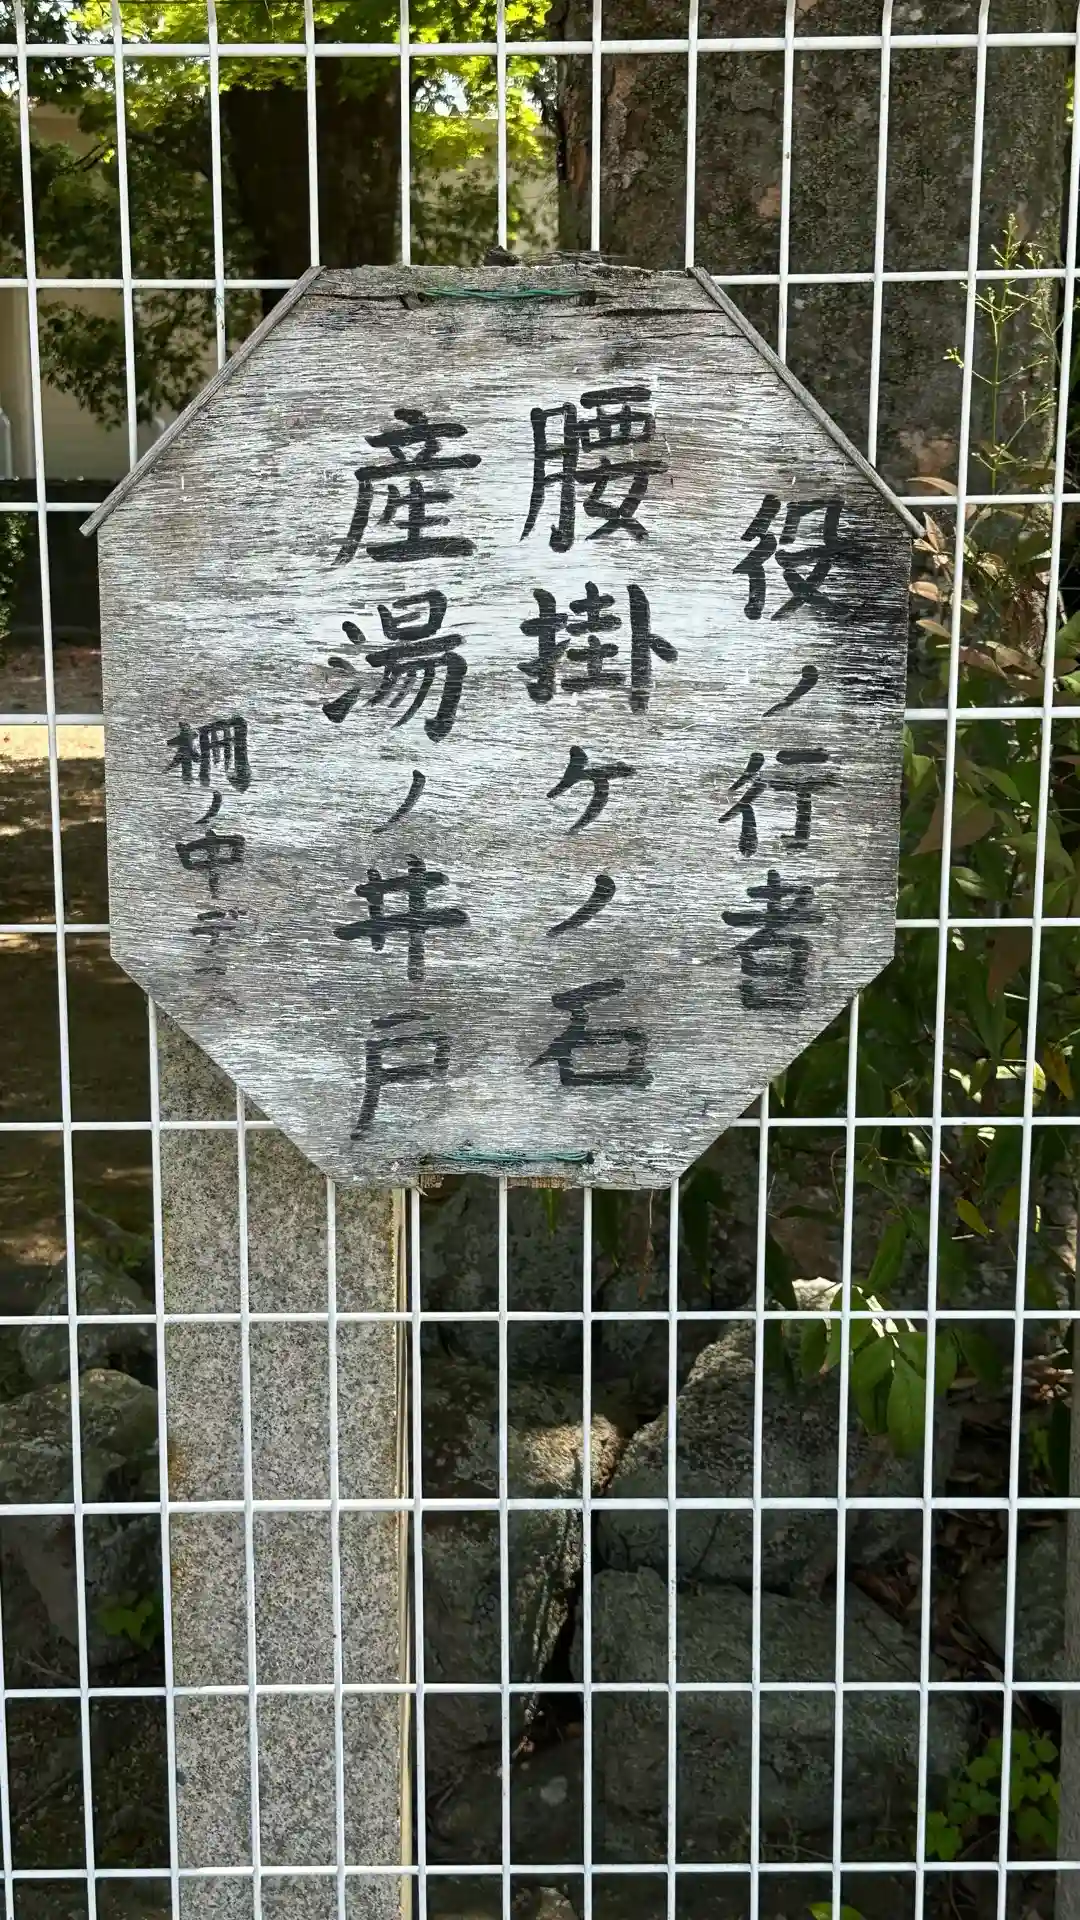 役ノ行者
腰掛ケノ石
産湯ノ井戸
柵ノ中デス